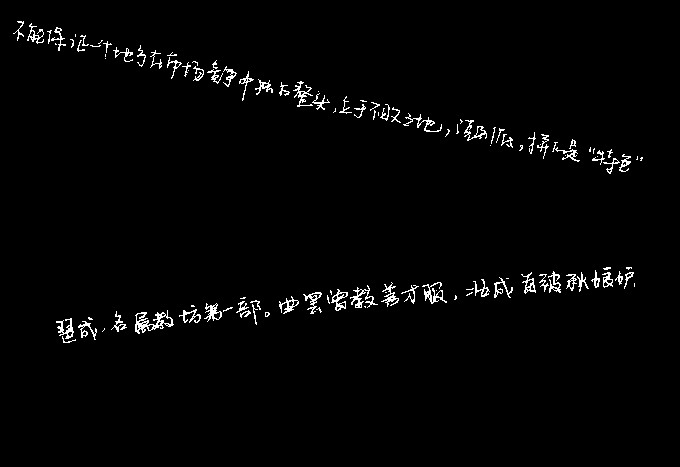 不能保证一个地方在市场竞争中独占鳌头,立于不败之地,须知,拼的是“特色”
琶成,名属教坊第一部。曲罢曾教善才服,妆成每被秋娘妒,